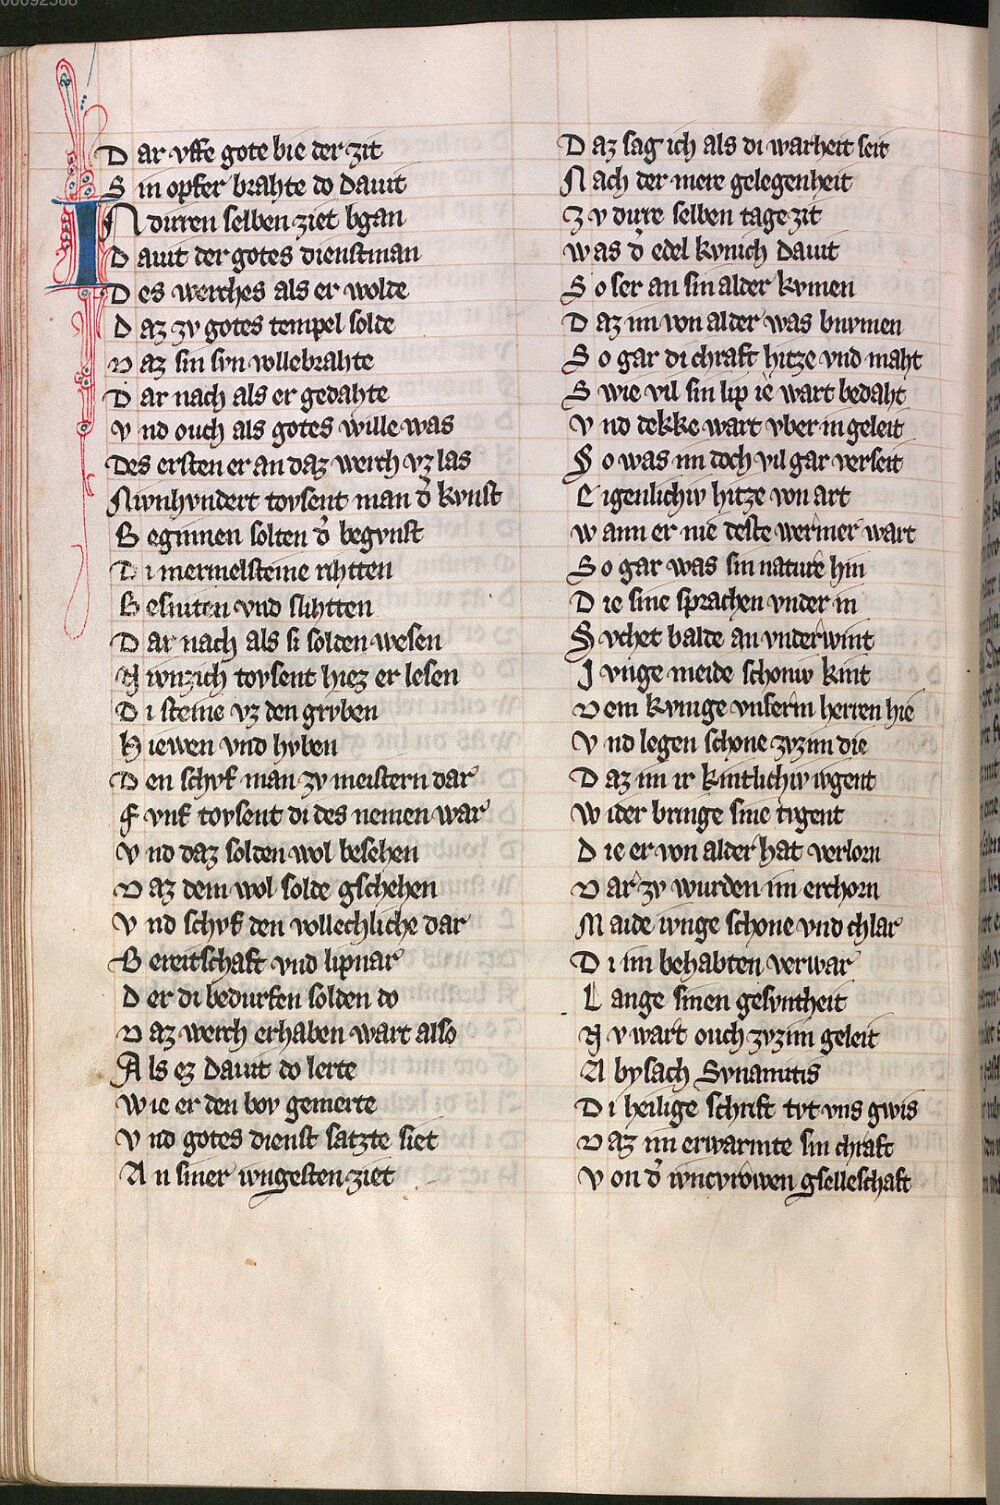 00092388
D ar vffe gote bie der zit
S in opfer brahte do dauit
I N diuren selben ziet bgan
D auit der gotes dienstman
D es werches als er wolde
D az zv gotes tempel solde
D az sin svn vollebrahte
D ar nach als er gedahte
V nd ouch als gotes wille was
Des ersten er an daz werch vz las
Niwnhvndert tovsent man d̾ kvnst
B eginnen solten d̾ begvnst
D i mermelsteine rihtten
B esniten vnd slihtten
D ar nach als si solden wesen
N iwnzich tovsent hiez er lesen
D i steine vz den grvben
H iewen vnd hvben
D en schvf man zv meistern dar
F vnf tovsent di des nemen war
V nd daz solden wol besehen
D az dem wol solde gschehen
V nd schvf den vollechliche dar
B ereitschaft vnd lipnar
D er di bedurfen solden do
D az werch erhaben wart also
A ls ez dauit do lerte
W ie er den bov gemerte
V nd gotes dienst satzte siet
A n siner iwngesten ziet
D az sag ich als di warheit seit
N ach der mere gelegenheit
Z v dirre selben tage zit
W as d̾ edel kvnich dauit
S o ser an sin alder kvmen
D az im von alder was bnvmen
S o gar di chraft hitze vnd maht
S wie vil sin lip ie wart bedaht
V nd dekke wart vber in geleit
S o was im doch vil gar verseit
E igenlichiv hitze von art
W ann er nie deste wermer wart
S o gar was sin nature hin
D ie sine sprachen vnder in
S vchet balde an vnderwint
J vnge meide schoniv kint
D em kvnige vnserm herren hie
V nd legen schone zvzim die
D az im ir kintlichiv ivgent
W ider bringe sine tvgent
D ie er von alder hat verlorn
D ar zv wurden im erchorn
M aide ivnge schone vnd chlar
D i im behabten verwar
L ange sinen gesvntheit
N v wart ouch zvzim geleit
A bysach Synamitis
D i heilige schrift tvt vns gwis
D az im erwarmte sin chraft
V on d̾ ivncvrowen gselleschaft